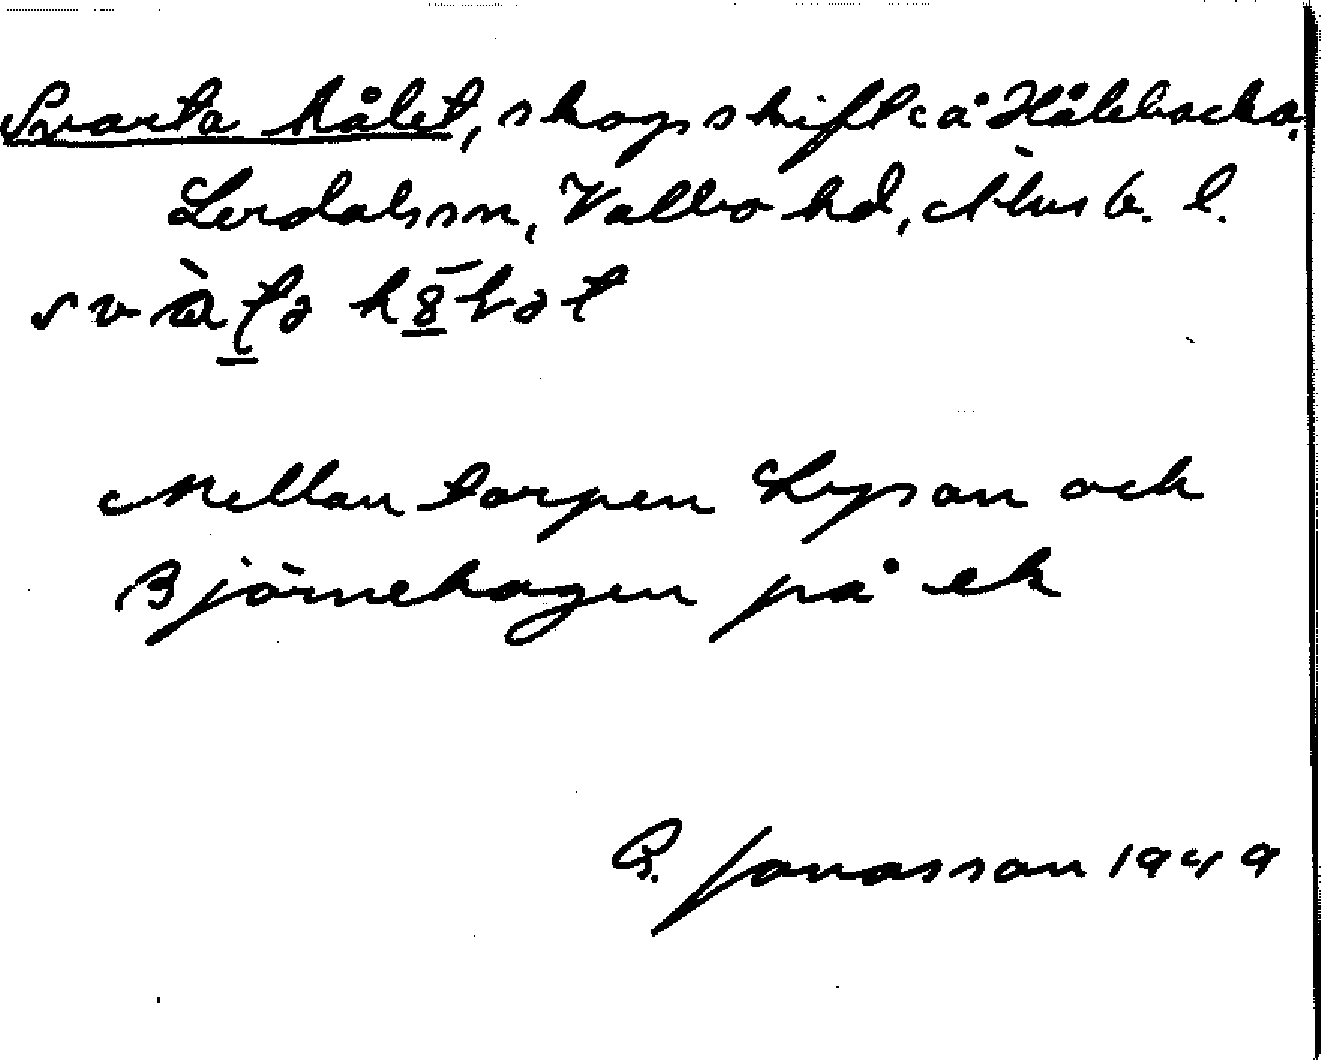 Svarta hålet, skogsskifte å Hålebacka,
Lerdals sn, Valbo hd, Älvsb. l.
Mellan torpen Lysan och
Björnehagen på ek
G. Jonasson 1949